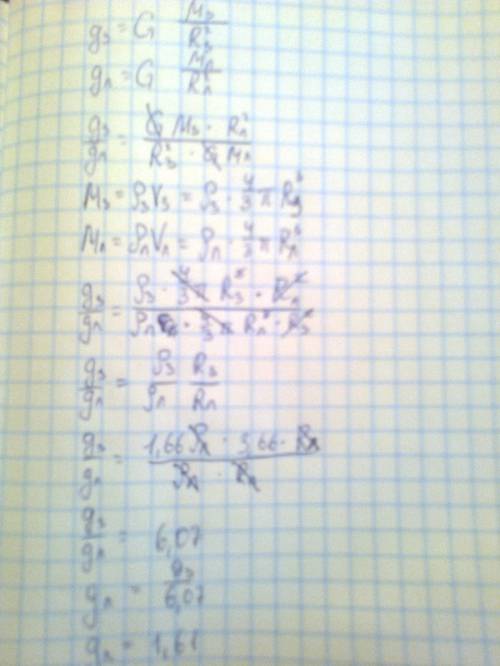 gз = G Mз / Rз²
gл = G Mл / Rл²
gз / gл = G Mз · Rл² / Rз² · G Mл
Mз = ρзVз = ρз · 4/3 π Rз³
Mл = ρлVл = ρл · 4/3 π Rл³
gз / gл = ρз · 4/3 π Rз³ · Rл² / ρл · 4/3 π Rл³ · Rз²
gз / gл = ρз / ρл Rз / Rл
gз / gл = 1,66 ρл · 3,66 · Rл / ρл · Rл
gз / gл = 6,07
gл = gз / 6,07
gл = 1,61